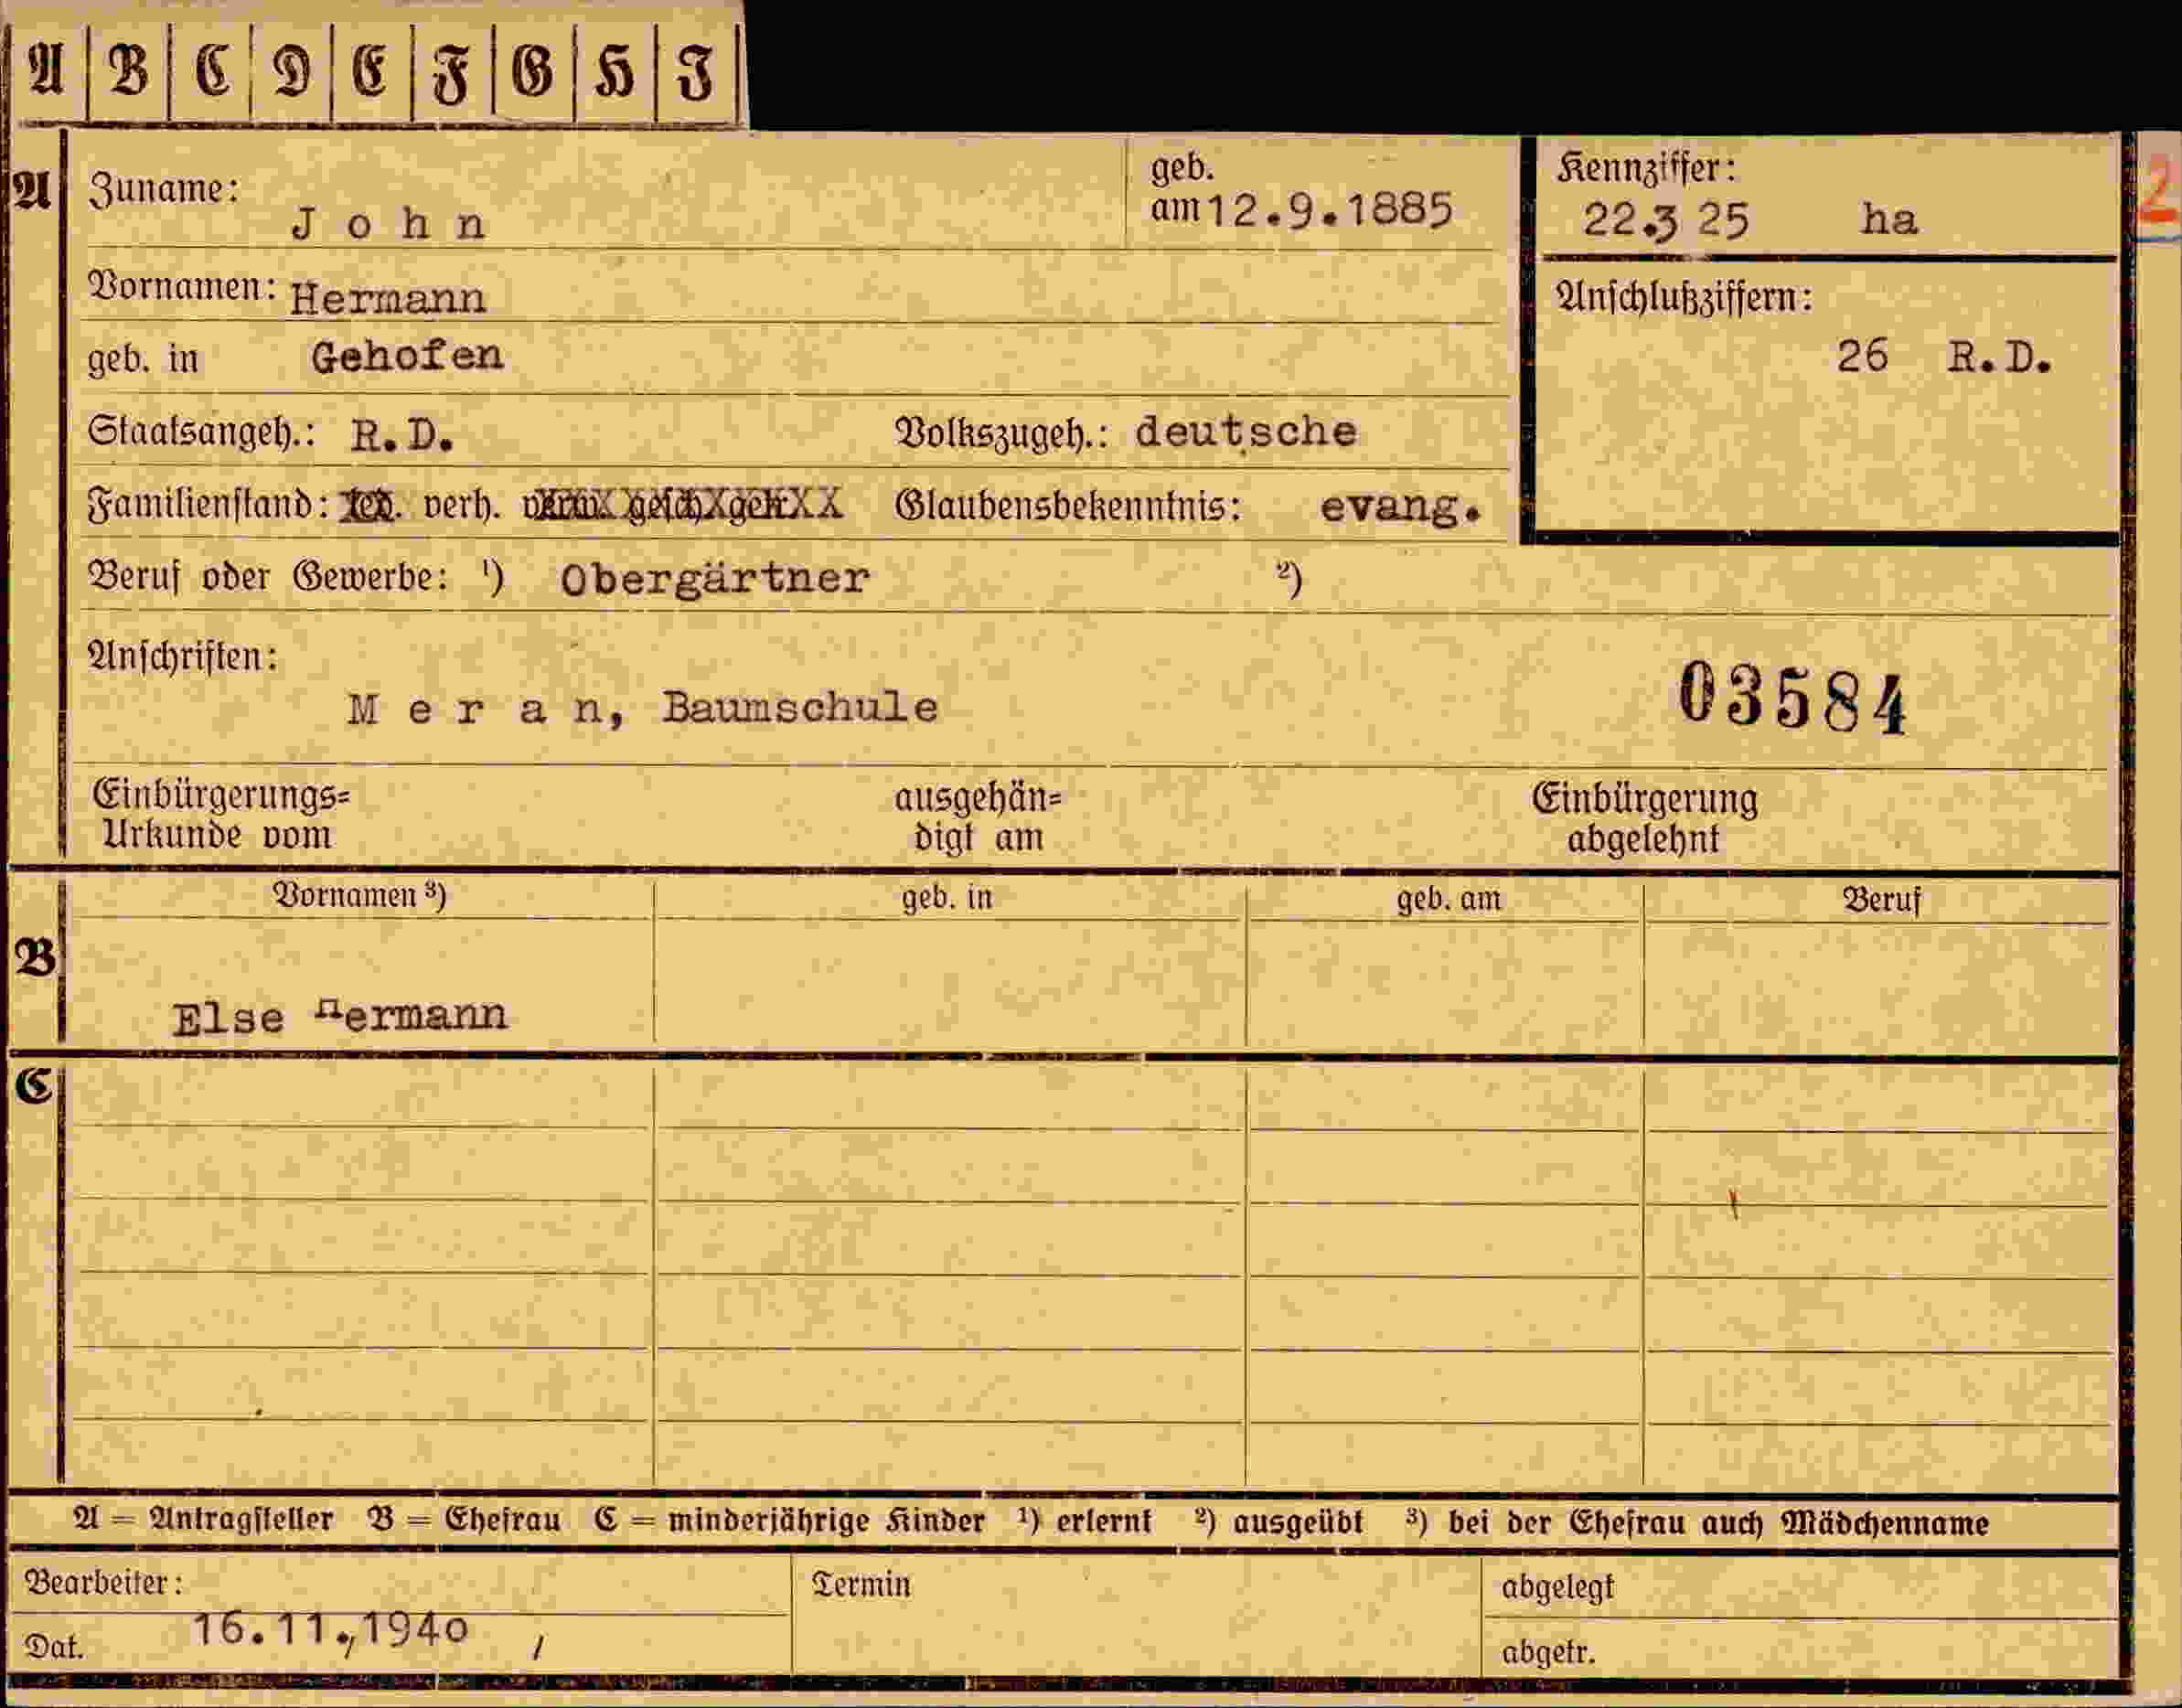 A B C D E F G H J
A Zuname: J o h n
geb. am 12.9.1885
Kennziffer: 22.3 25 ha
2
Vornamen: Hermann
Anschlußziffern:
26 R.D.
geb. in Gehofen
Staatsangeh.: R.D. Volkszugeh.: deutsche
Familienstand: led. verh. verw. gesch. getr. Glaubensbekenntnis: evang.
Beruf oder Gewerbe: ¹) Obergärtner ²)
Anschriften:
M e r a n, Baumschule
03584
Einbürgerungs=
Urkunde vom
ausgehän=
digt am
Einbürgerung
abgelehnt
B Vornamen ³) geb. in geb. am Beruf
Else Hermann
C
A = Antragsteller B = Ehefrau C = minderjährige Kinder ¹) erlernt ²) ausgeübt ³) bei der Ehefrau auch Mädchenname
Bearbeiter: Termin abgelegt
Dat. 16.11.,1940 / abgetr.